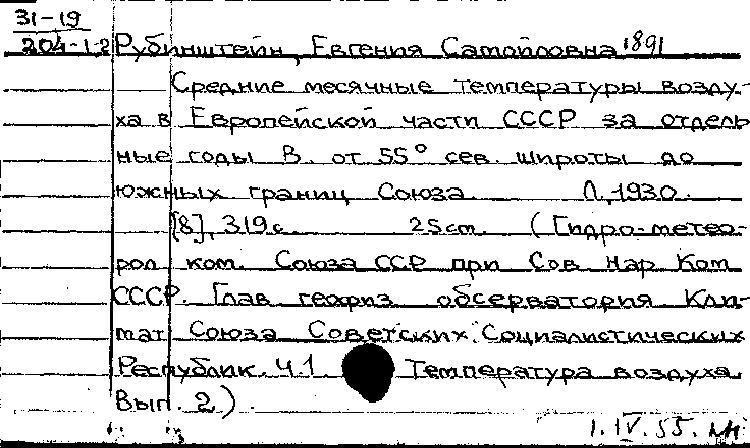 31-19
204-1-2 Рубинштейн, Евгения Самойловна 1891
Средние месячные температуры возду-
ха в Европейской части СССР за отдель
ные годы В. от 55° сев. широты до
южных границ Союза Л, 1930.
[8], 319 с. 25 cm. (Гидро-метео-
рол ком. Союза ССР при Сов Нар Ком
СССР. Глав геофиз обсерватория Кли-
мат Союза Советских Социалистических
Республик. Ч.1 Температура воздуха
Вып. 2).
1.IV.55.